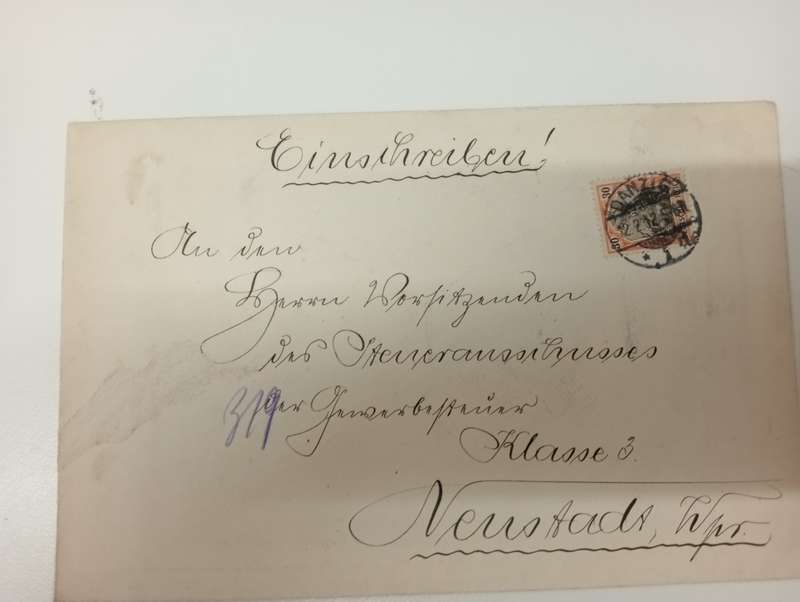 Einschreiben!
30
DANZIG
An den
Herrn Vorsitzenden
des Steuerausschusses
der Gewerbesteuer
319
Klasse 3.
Neustadt, Wpr.